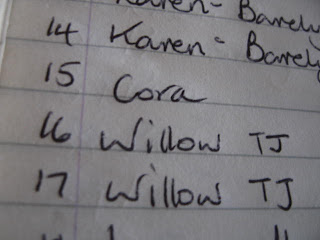 Karen - Barely
14 Karen - Barely
15 Cora
16 Willow TJ
17 Willow TJ